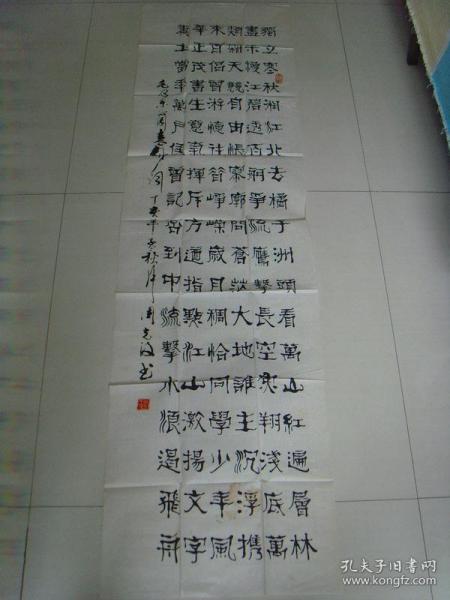 獨立寒秋湘江北去橘子洲頭看萬山紅遍層林
盡染漫江碧透百舸爭流鷹擊長空魚翔淺底萬
類霜天競自由悵寥廓問蒼茫大地誰主沉浮携
來百侣曾游憶往昔崢嶸歲月稠恰同學少年風
華正茂書生意氣揮斥方遒指點江山激揚文字
糞土當年萬户侯曾記否到中流擊水浪遏飛舟
毛澤東 詞 丁亥年 周 書
孔夫子旧书网
www.kongfz.com